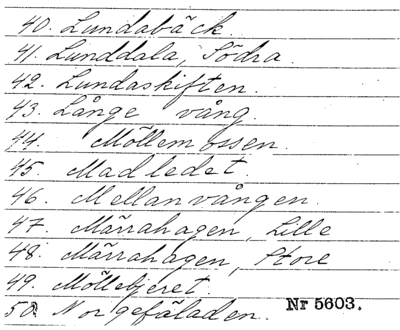 40. Lundabäck.
41. Lunddala, Södra.
42. Lundaskiften.
43. Långe vång.
44. Möllemossen.
45. Madledet.
46. Mellanvången.
47. Märrahagen, Lille
48. Märrahagen, Store
49. Möllebjeret.
50. Norgefäladen. Nr 5603.